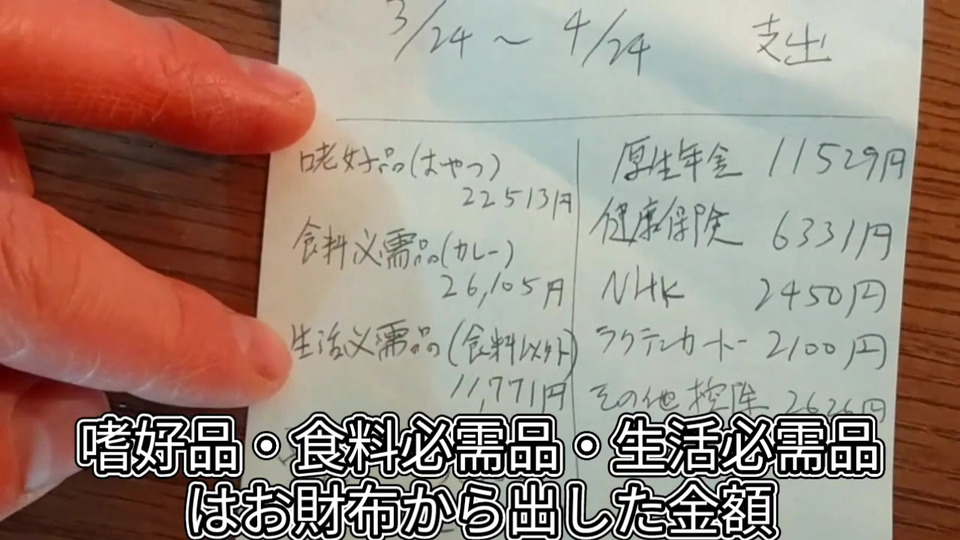 3/24～4/24 支出
嗜好品(おやつ)
22513円
食料必需品(カレー)
26,105円
生活必需品(食料以外)
11,771円
厚生年金 11529円
健康保険 6331円
NHK 2450円
ラクテンカード 2100円
その他控除 2626円
嗜好品・食料必需品・生活必需品
はお財布から出した金額